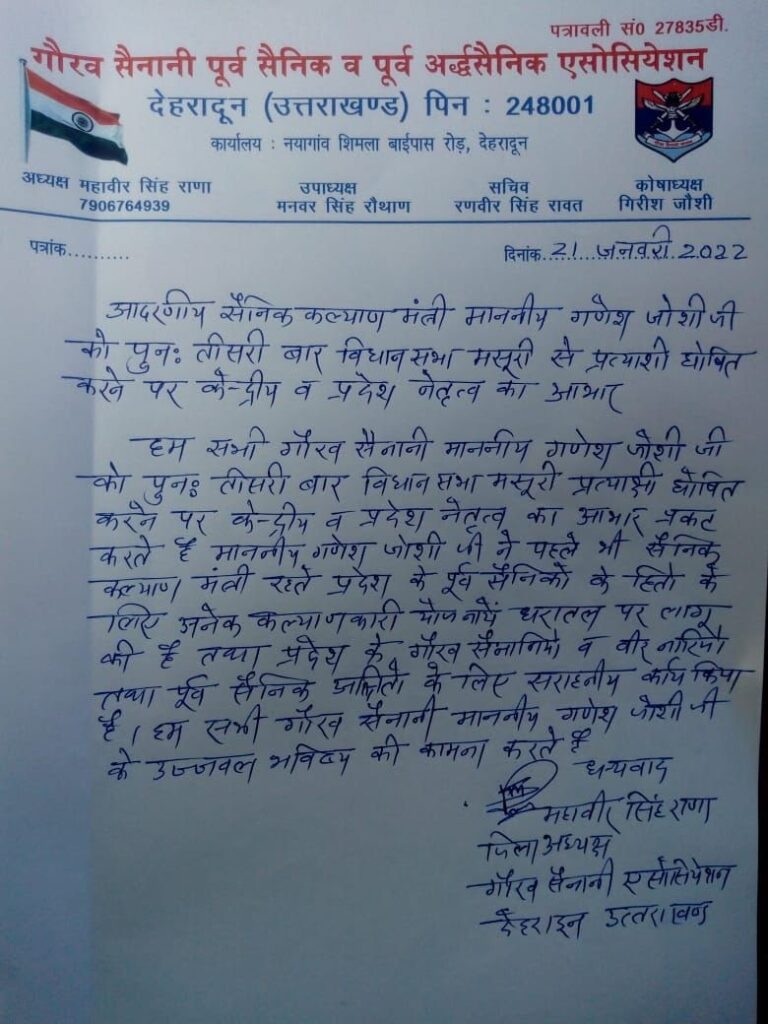 पत्रावली सं0 27835डी.
गौरव सैनानी पूर्व सैनिक व पूर्व अर्द्धसैनिक एसोसियेशन
देहरादून (उत्तराखण्ड) पिन : 248001
कार्यालय : नयागांव शिमला बाईपास रोड़, देहरादून
अध्यक्ष महावीर सिंह राणा
7906764939
उपाध्यक्ष
मनवर सिंह रौथाण
सचिव
रणवीर सिंह रावत
कोषाध्यक्ष
गिरीश जौशी
पत्रांक..........
दिनांक. 21 जनवरी 2022
आदरणीय सैनिक कल्याण मंत्री माननीय गणेश जोशी जी
को पुनः तीसरी बार विधानसभा मसूरी से प्रत्याशी घोषित
करने पर केन्द्रीय व प्रदेश नेतृत्व का आभार
हम सभी गौरव सैनानी माननीय गणेश जोशी जी
को पुनः तीसरी बार विधानसभा मसूरी प्रत्याक्षी घोषित
करने पर केन्द्रीय व प्रदेश नेतृत्व का आभार प्रकट
करते है माननीय गणेश जोशी जी ने पहले भी सैनिक
कल्याण मंत्री रहते प्रदेश के पूर्व सैनिको के हितो के
लिए अनेक कल्याणकारी योजनायें धरातल पर लागू
की है तथा प्रदेश के गौरव सैनानियो व वीर नारियो
तथा पूर्व सैनिक के लिए सराहनीय कार्य किया
है। हम सभी गौरव सैनानी माननीय गणेश जोशी जी
के उज्जवल भविष्य की कामना करते है
धन्यवाद
महावीर सिंह राणा
जिला अध्यक्ष
गौरव सैनानी एसोसियेशन
देहरादून उत्तराखण्ड